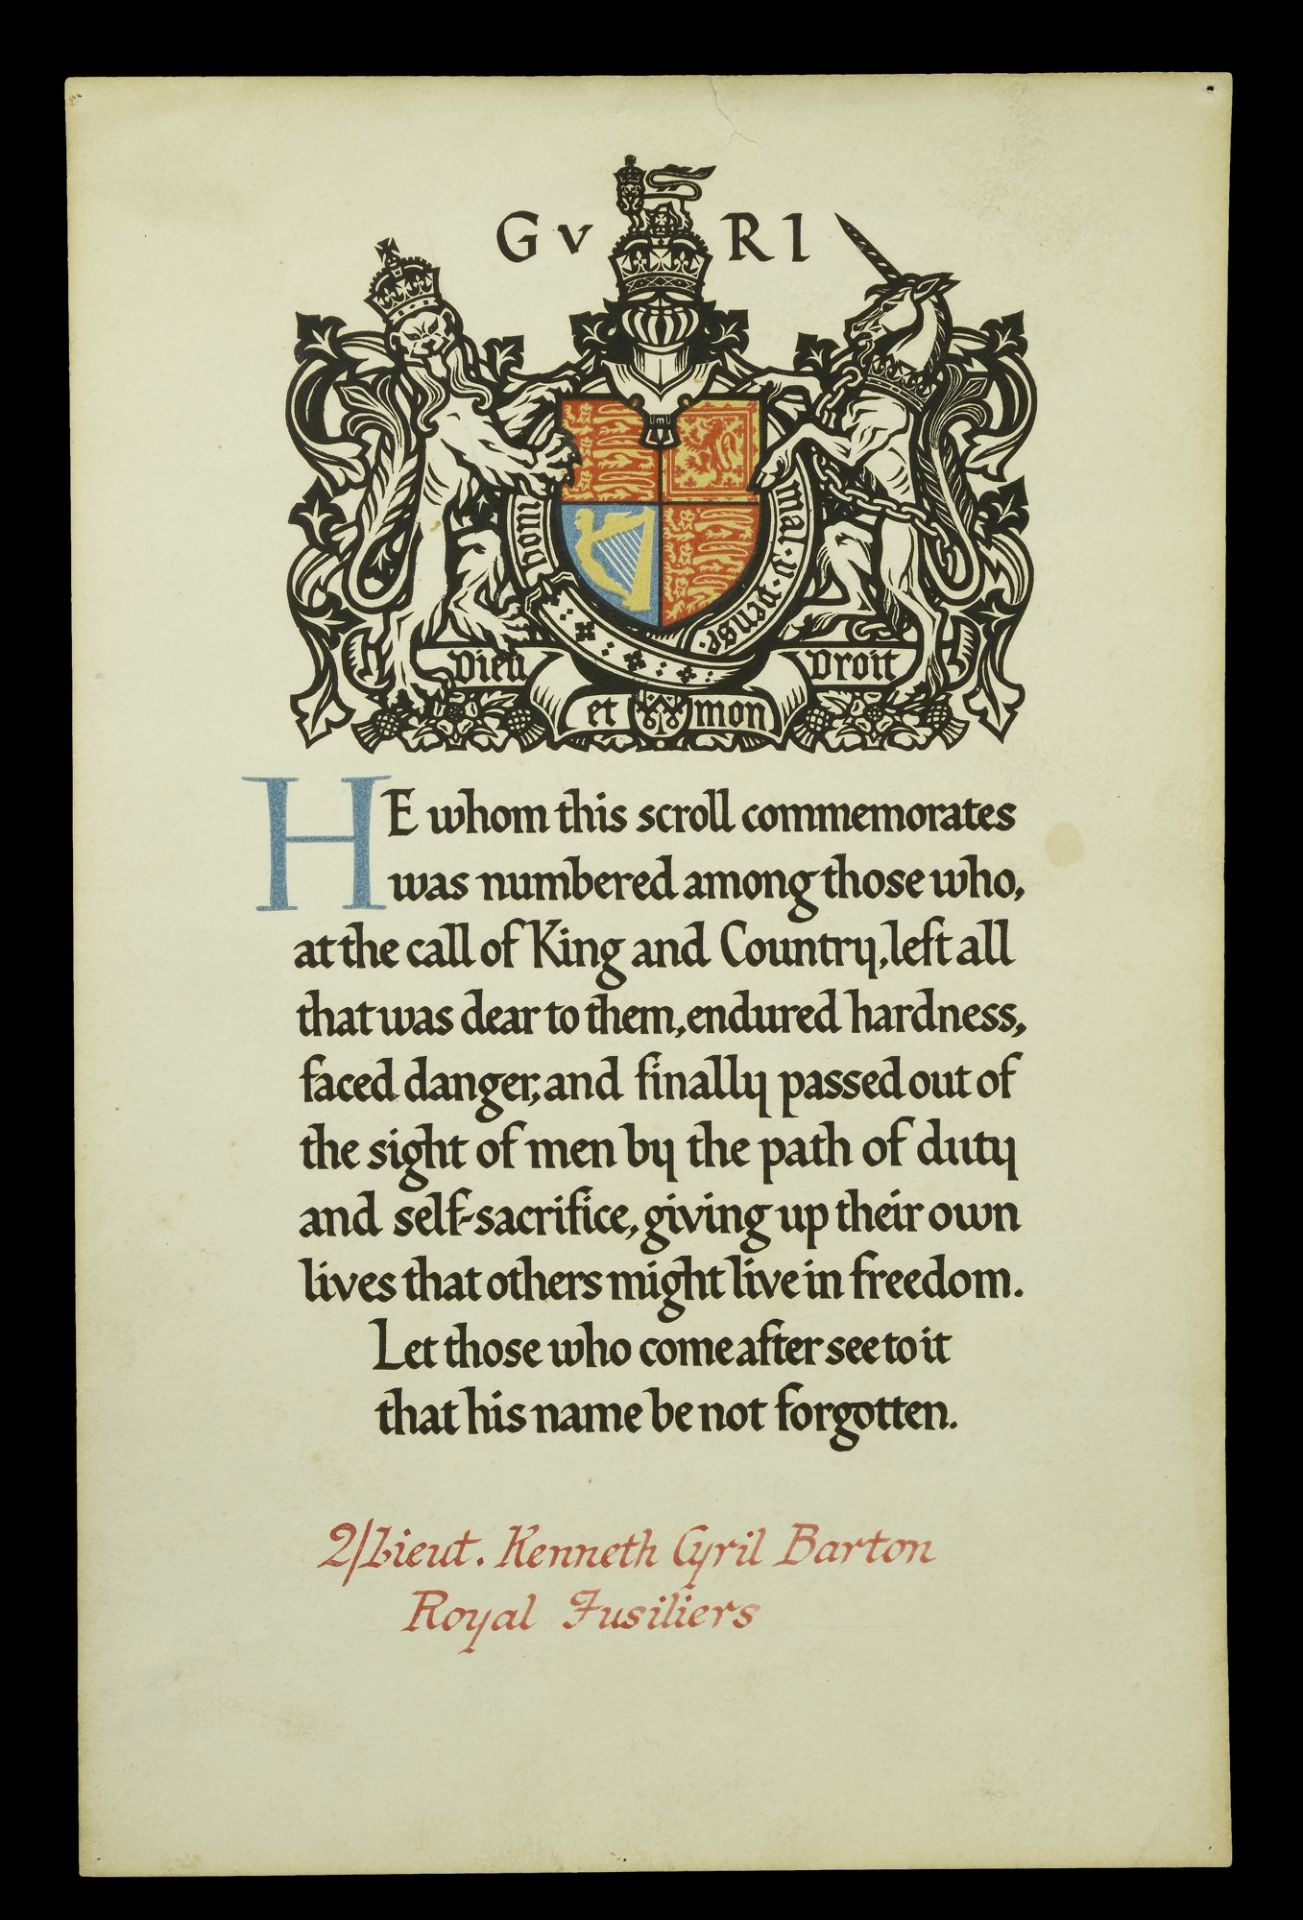 GV RI
honi
mal·y·pense·
Dieu
et mon
Droit
HE whom this scroll commemorates
was numbered among those who,
at the call of King and Country, left all
that was dear to them, endured hardness,
faced danger, and finally passed out of
the sight of men by the path of duty
and self-sacrifice, giving up their own
lives that others might live in freedom.
Let those who come after see to it
that his name be not forgotten.
2/Lieut. Kenneth Cyril Barton
Royal Fusiliers